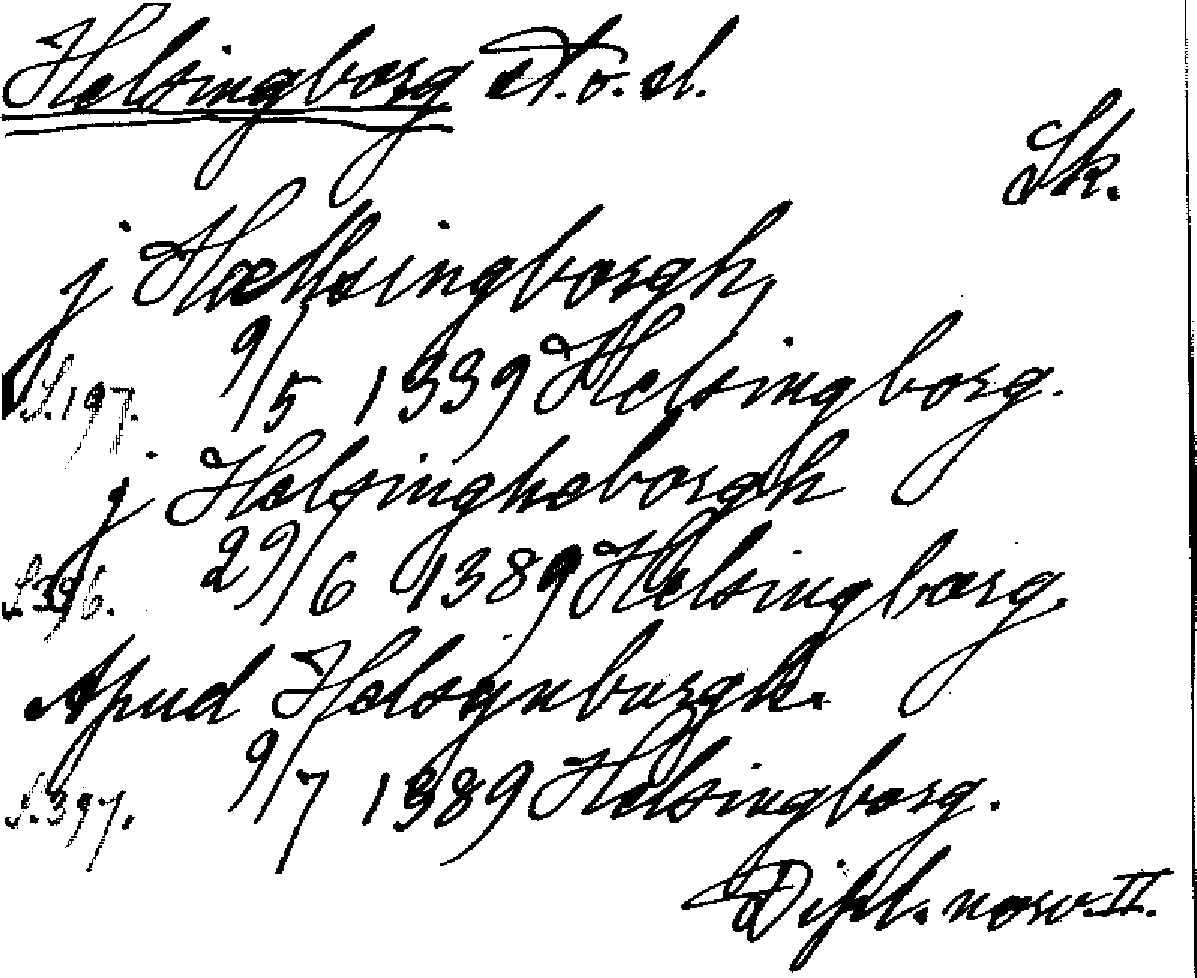 Helsingborg st. o. sl.
Sk.
j Hællsingborgh,
S. 197. 9/5 1339 Helsingborg.
j Helsingheborgh
S. 396. 29/6 1389 Helsingborg.
Apud Helsynburgh.
S. 397. 9/7 1389 Helsingborg.
Dipl. norv. II.